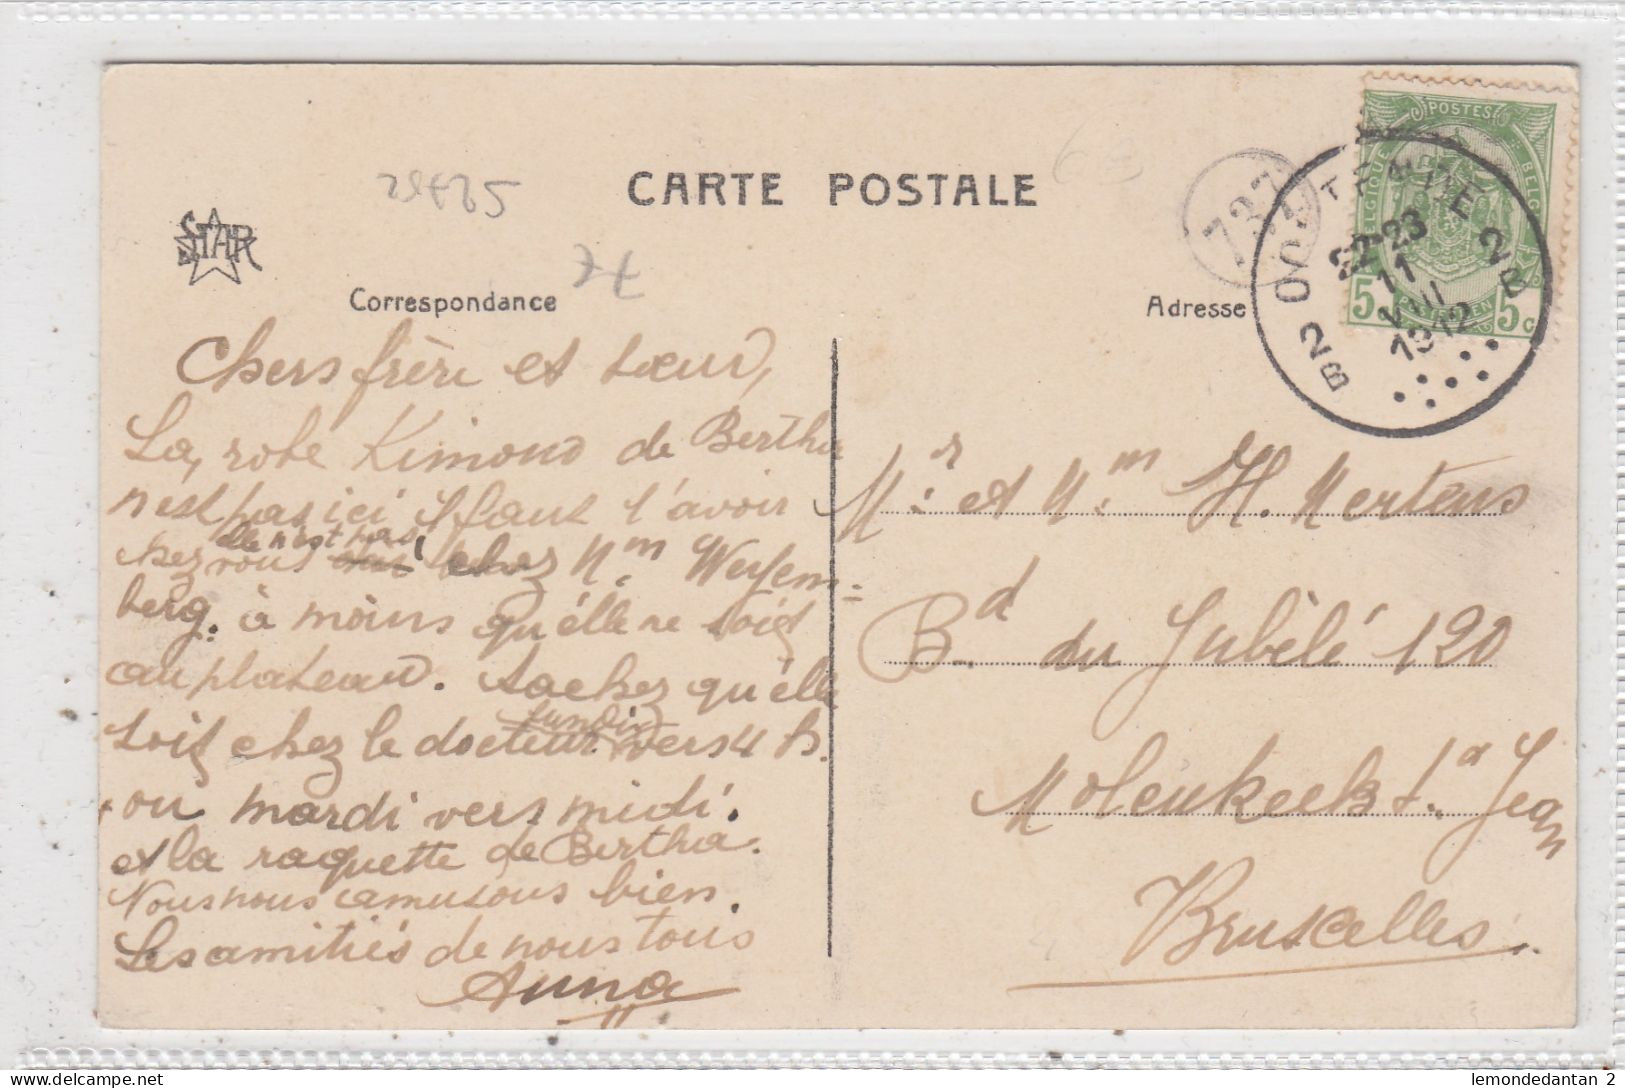 CARTE POSTALE
29485
STAR
Correspondance
Adresse
737
POSTES
BELGIQUE
BELGIË
5 c
5 c
22-23
11
VIII
1912
B 2
2 B
Chers frère et sœur,
La, robe Kimono de Bertha
n'est pas ici Il faut l'avoir
elle n'est pas
chez vous chez Mm. Weyem=
berg. à moins qu'élle ne soit
au plateau. Sachez qu'élle
lundi
soit chez le docteur vers 4 h.
ou mardi vers midi.
et la raquette de Bertha.
Nous nous amusons bien.
Les amitiés de nous tous
Anna
Mr. et Mm. H. Mertens
Bd. du Jubélé 120
Molenbeek St. Jean
Bruxelles.
lemondedantan_2